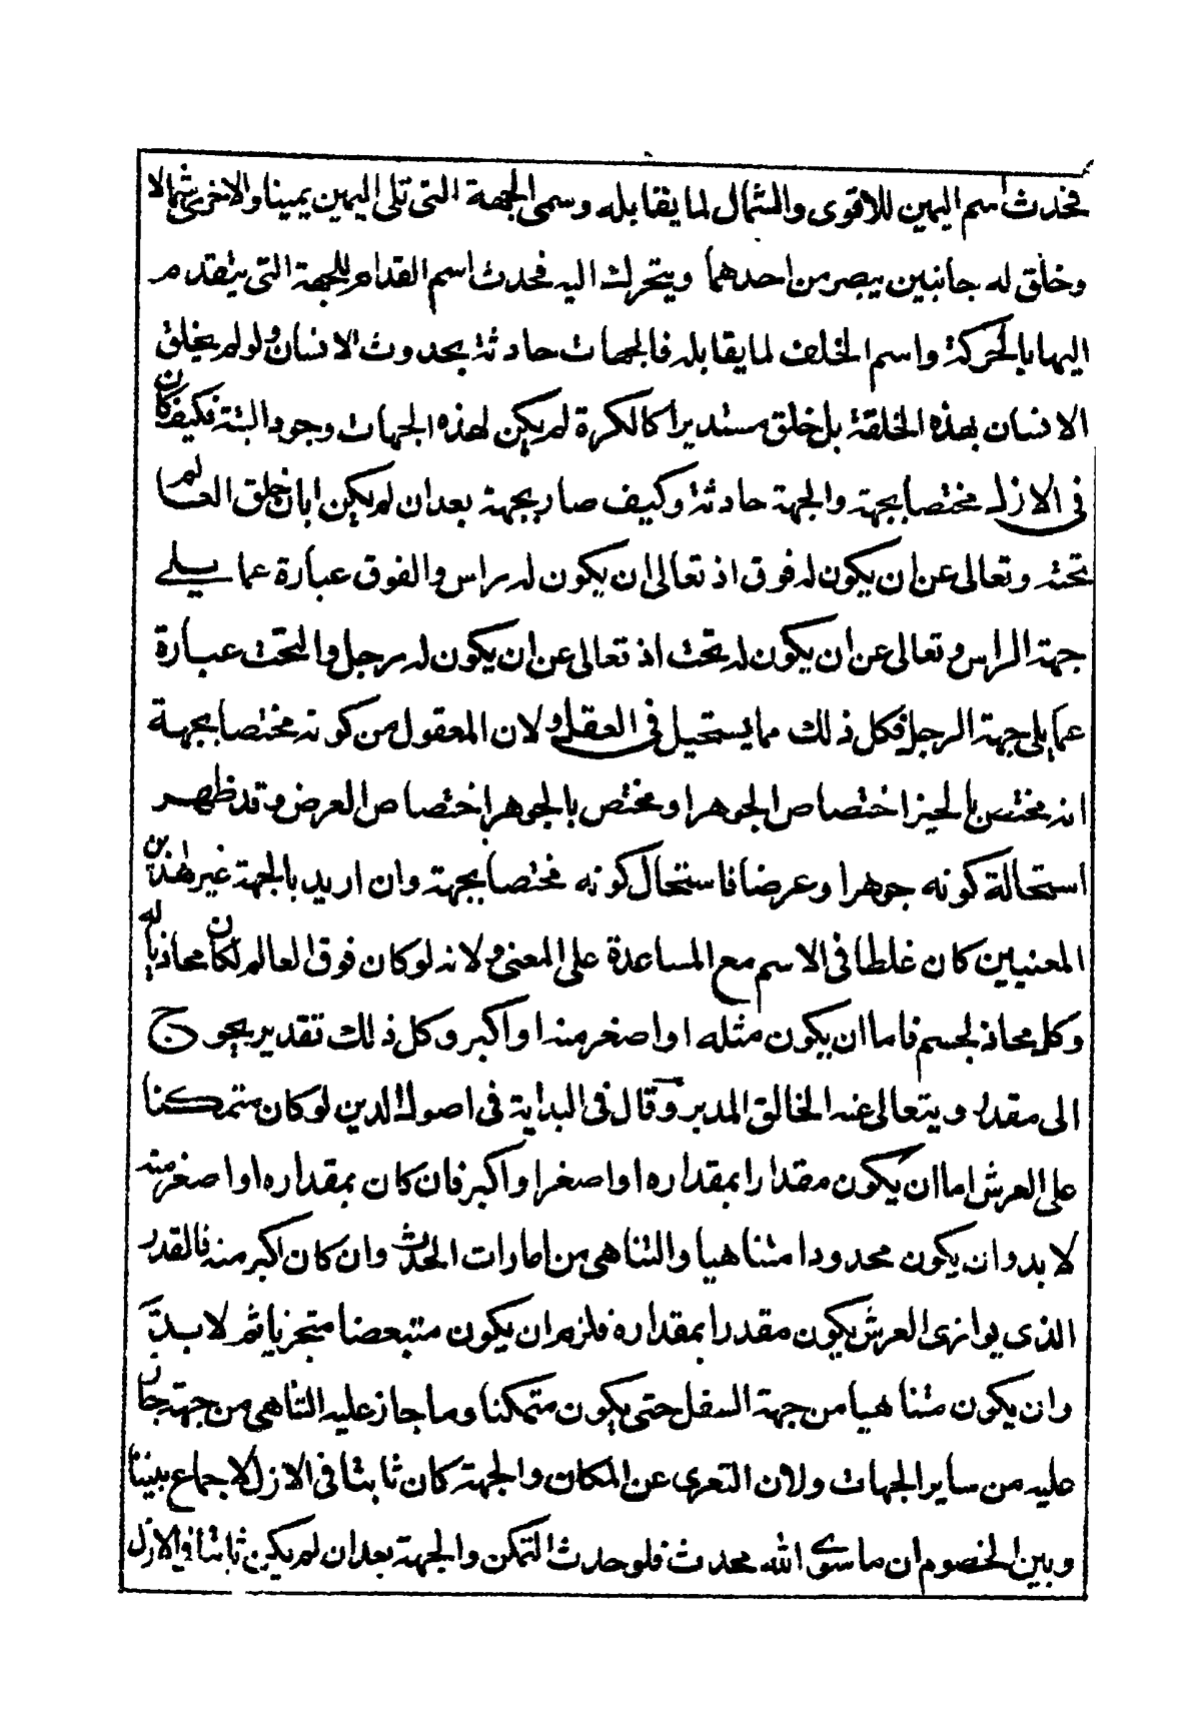 فحدث اسم اليمين للاقوى والشمال لما يقابله وسمى الجهة التى تلى اليمين يمينا والاخرى شمالا
وخلق له جانبين يبصر من احدهما ويتحرك اليه فحدث اسم القدام للجهة التى يتقدم
اليها بالحركة واسم الخلف لما يقابله فالجهات حادثة بحدوث الانسان ولو لم يخلق
الانسان بهذه الخلقة بل خلق مستديرا كالكرة لم يكن لهذه الجهات وجود البتة فكيف كان
فى الازل مختصا بجهة والجهة حادثة وكيف صار بجهة بعد ان لم يكن ابان خلق العالم
تحته وتعالى عن ان يكون له فوق اذ تعالى ان يكون له راس والفوق عبارة عما يلى
جهة الراس وتعالى عن ان يكون له تحت اذ تعالى عن ان يكون له رجل والتحت عبارة
عما يلى جهة الرجل فكل ذلك مما يستحيل فى العقل ولان المعقول من كونه مختصا بجهة
انه مختص بالحيز اختصاص الجوهر او مختص بالجوهر اختصاص العرض وقد ظهر
استحالة كونه جوهرا وعرضا فاستحال كونه مختصا بجهة وان اريد بالجهة غير هذين
المعنيين كان غلطا فى الاسم مع المساعدة على المعنى ولانه لو كان فوق العالم لكان محاذيا له
وكل محاذ لجسم فاما ان يكون مثله او اصغر منه او اكبر وكل ذلك تقدير يحوج
الى مقدر ويتعالى عنه الخالق المدبر وقال فى البداية فى اصول الدين لو كان متمكنا
على العرش اما ان يكون مقدارا بمقداره او اصغر او اكبر فان كان بمقداره او اصغر منه
لا بد وان يكون محدودا متناهيا والتناهى من امارات الحدث وان كان اكبر منه فالقدر
الذى يوازى العرش يكون مقدرا بمقداره فلزم ان يكون متبعضا متجزيا ثم لا بد
وان يكون متناهيا من جهة السفل حتى يكون متمكنا وما جاز عليه التناهى من جهة جاز
عليه من ساير الجهات ولان التعرى عن المكان والجهة كان ثابتا فى الازل لاجماع بيننا
وبين الخصوم ان ما سوى الله محدث فلو حدث التمكن والجهة بعد ان لم يكن ثابتا فى الازل